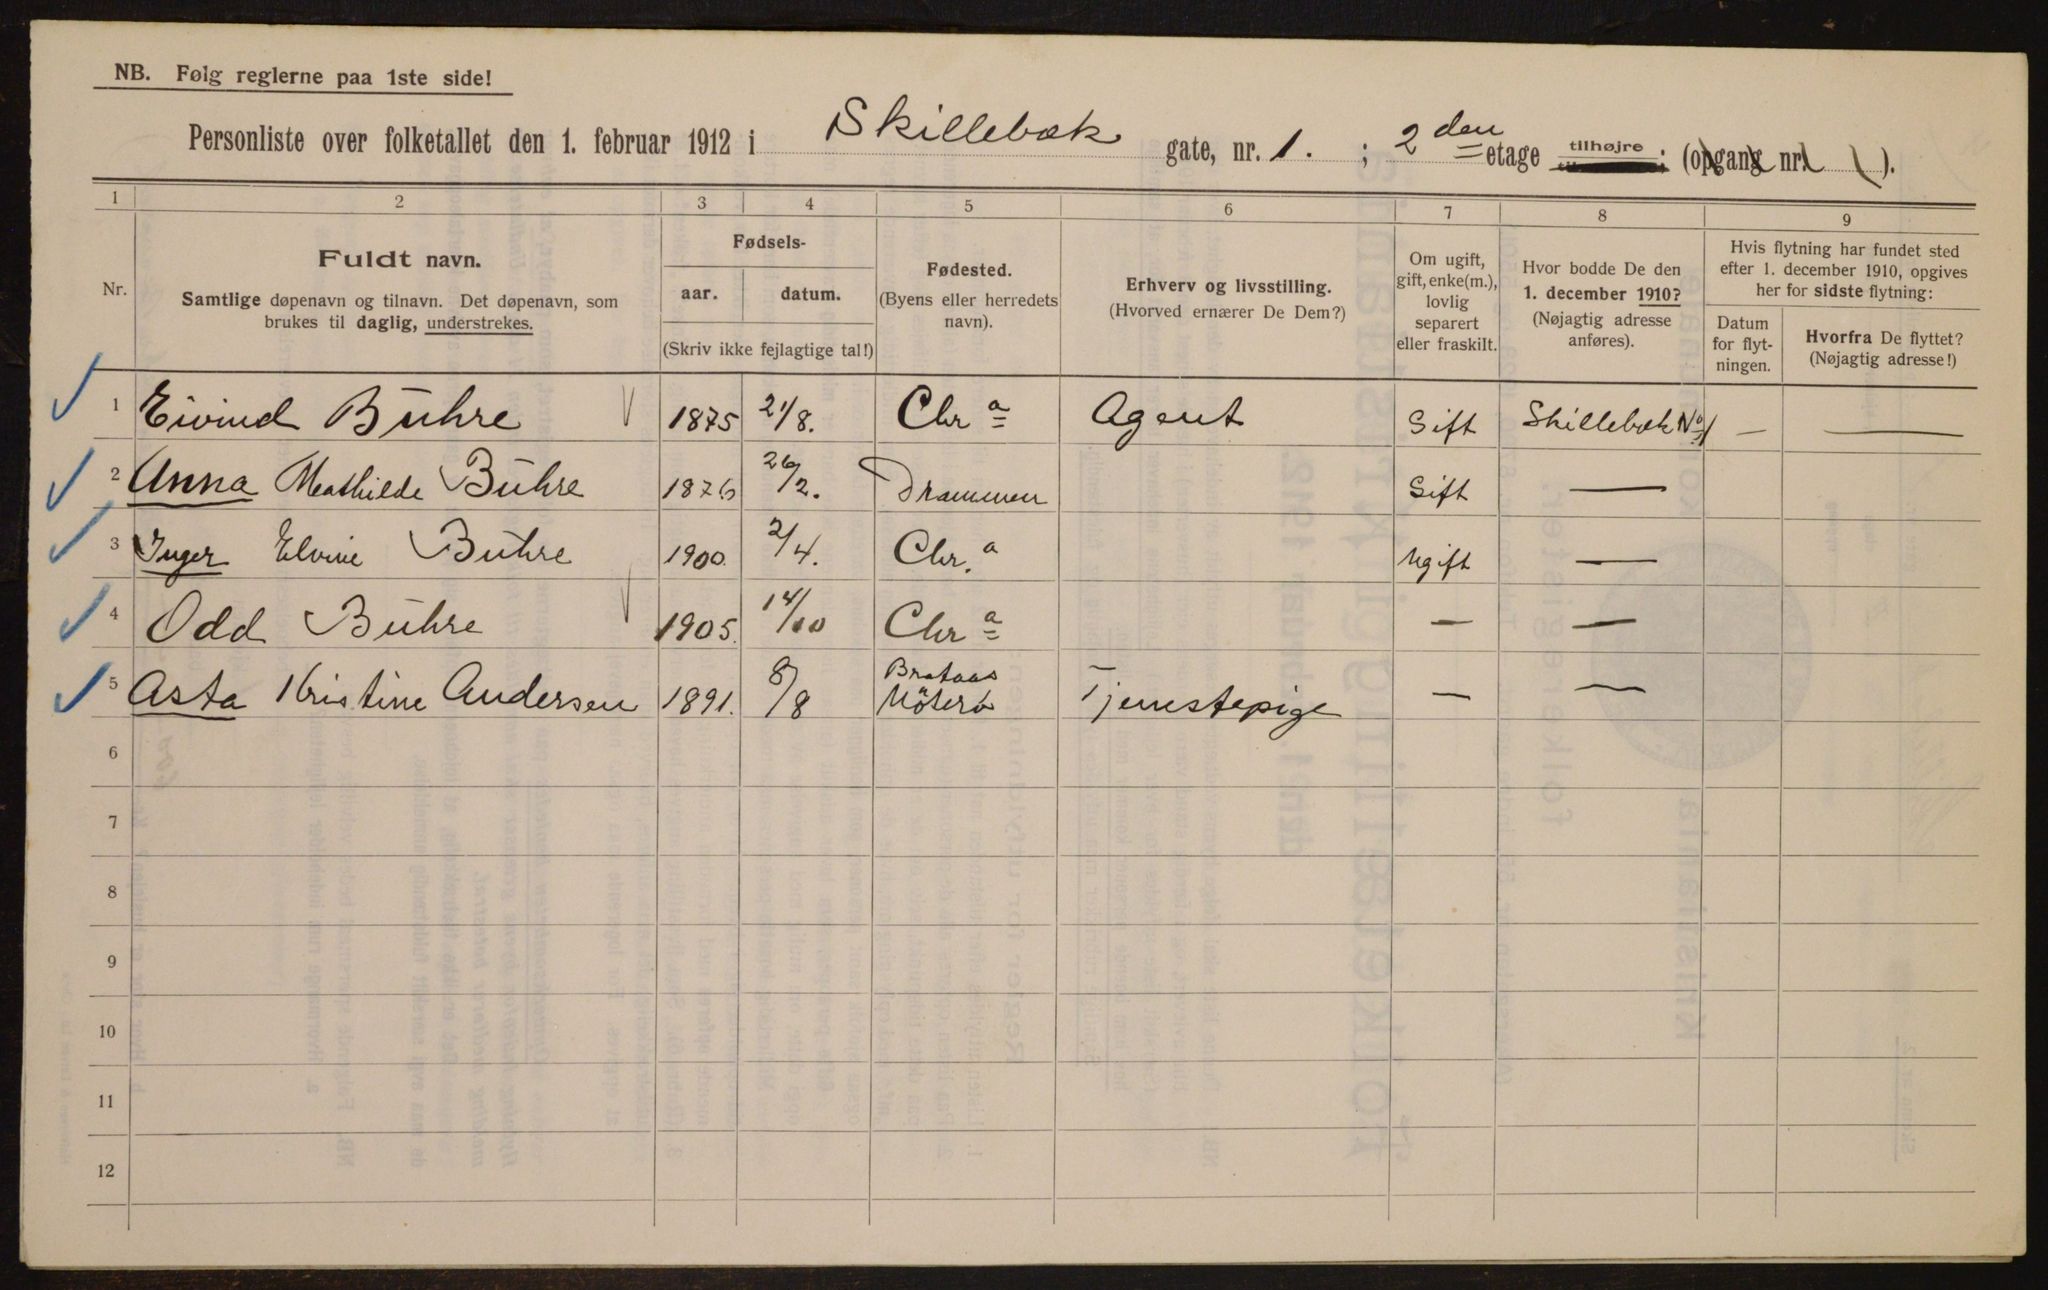 NB. Følg reglerne paa 1ste side!
Personliste over folketallet den 1. februar 1912 i Skillebæk gate, nr. 1. ; 2den etage tilhøjre ; (opgang nr. ).
1 2 3 4 5 6 7 8 9
Nr.
Fuldt navn.
Samtlige døpenavn og tilnavn. Det døpenavn, som
brukes til daglig, understrekes.
Fødsels-
aar. datum.
(Skriv ikke fejlagtige tal!)
Fødested.
(Byens eller herredets
navn).
Erhverv og livsstilling.
(Hvorved ernærer De Dem?)
Om ugift,
gift, enke(m.),
lovlig
separert
eller fraskilt.
Hvor bodde De den
1. december 1910?
(Nøjagtig adresse
anføres).
Hvis flytning har fundet sted
efter 1. december 1910, opgives
her for sidste flytning:
Datum
for flyt-
ningen.
Hvorfra De flyttet?
(Nøjagtig adresse!)
1 Eivind Buhre 1875 21/8. Chr a Agent Gift Skillebæk No 1 — —
2 Anna Mathilde Buhre 1876 26/2. Drammen Gift —
3 Inger Elvine Buhre 1900. 2/4. Chr. a Ugift —
4 Odd Buhre 1905. 14/10 Chr a — —
5 Asta Kristine Andersen 1891. 8/8 Brataas Nöterö Tjenestepige — —
6
7
8
9
10
11
12